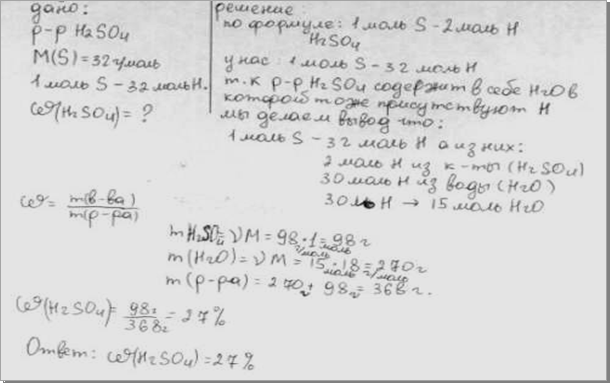 дано:
р-р H₂SO₄
M(S) = 32 г/моль
1 моль S - 32 моль H.
ω(H₂SO₄) = ?
решение:
по формуле: 1 моль S - 2 моль H
H₂SO₄
у нас: 1 моль S - 32 моль H
т.к р-р H₂SO₄ содержит в себе H₂O в
которой тоже присутствуют H
мы делаем вывод что:
1 моль S - 32 моль H а из них:
2 моль H из к-ты (H₂SO₄)
30 моль H из воды (H₂O)
30 м H → 15 моль H₂O
ω = m(в-ва) / m(р-ра)
m H₂SO₄ = νM = 98 г/моль · 1 моль = 98 г
m(H₂O) = νM = 15 моль · 18 г/моль = 270 г
m(р-ра) = 270 г + 98 г = 368 г.
ω(H₂SO₄) = 98 г / 368 г = 27 %
Ответ: ω(H₂SO₄) = 27 %